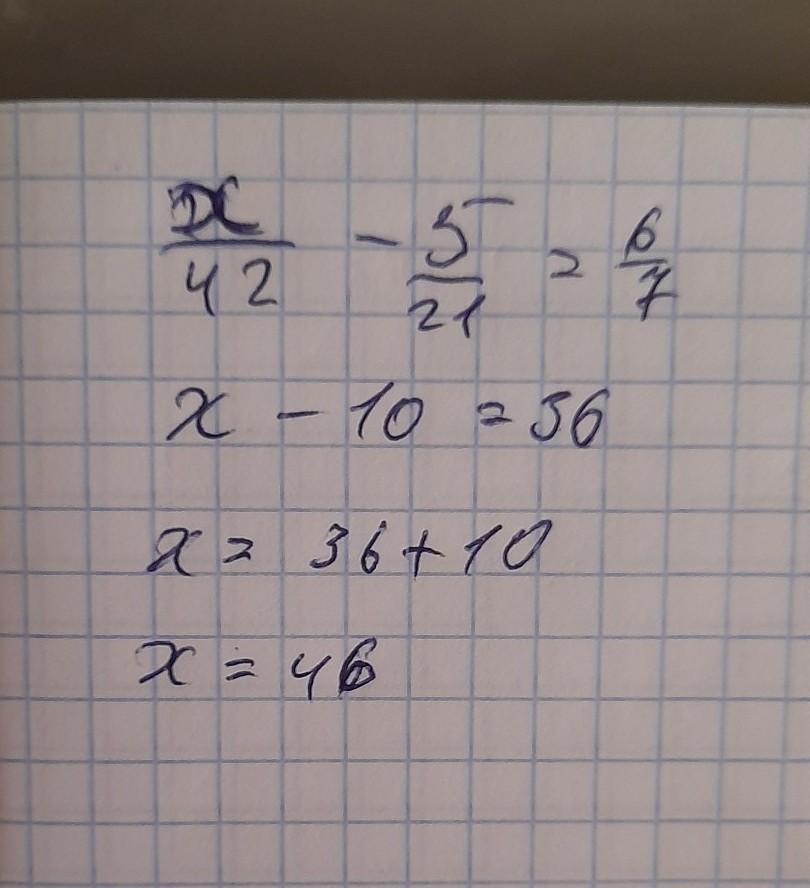 x/42 - 5/21 = 6/7
x - 10 = 36
x = 36 + 10
x = 46